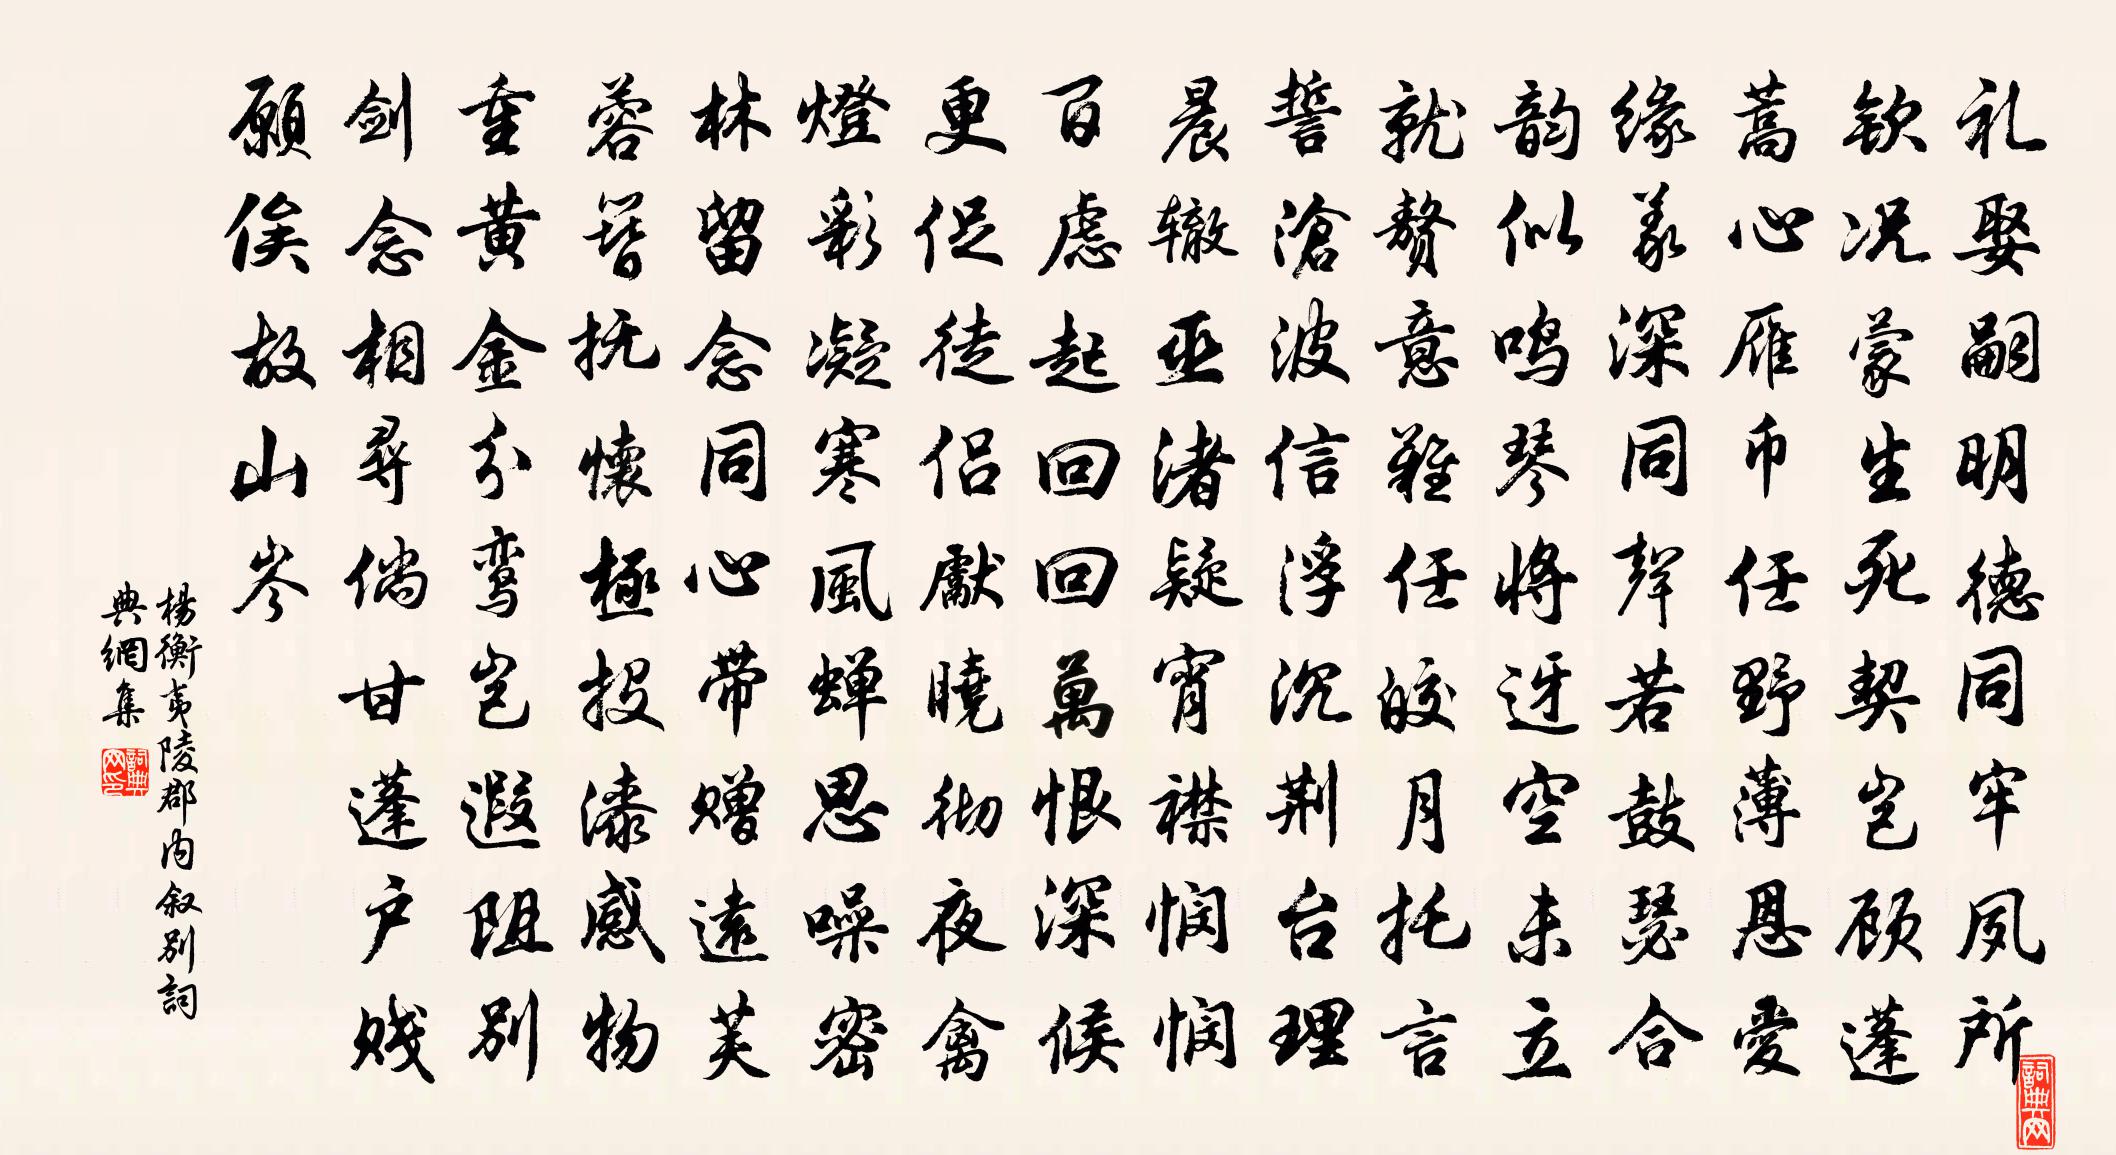 礼娶嗣明德同牢夙所
钦况蒙生死契岂顾蓬
蒿心雁币任野薄恩爱
缘义深同声若鼓瑟合
韵似鸣琴将迓空未立
就赘意难任皎月托言
誓滄波信浮沉荆台理
晨辙巫渚疑宵襟悯悯
百虑起回回萬恨深候
更促徒侣獻曉彻夜禽
燈彩凝寒風蝉思噪密
林留念同心带赠遠芙
蓉簪抚懷極投漆感物
重黄金分鸾岂遐阻别
剑念相尋倘甘蓬户贱
願俟故山岑
楊衡夷陵郡内叙别詞
典網集
詞典网
詞典网印